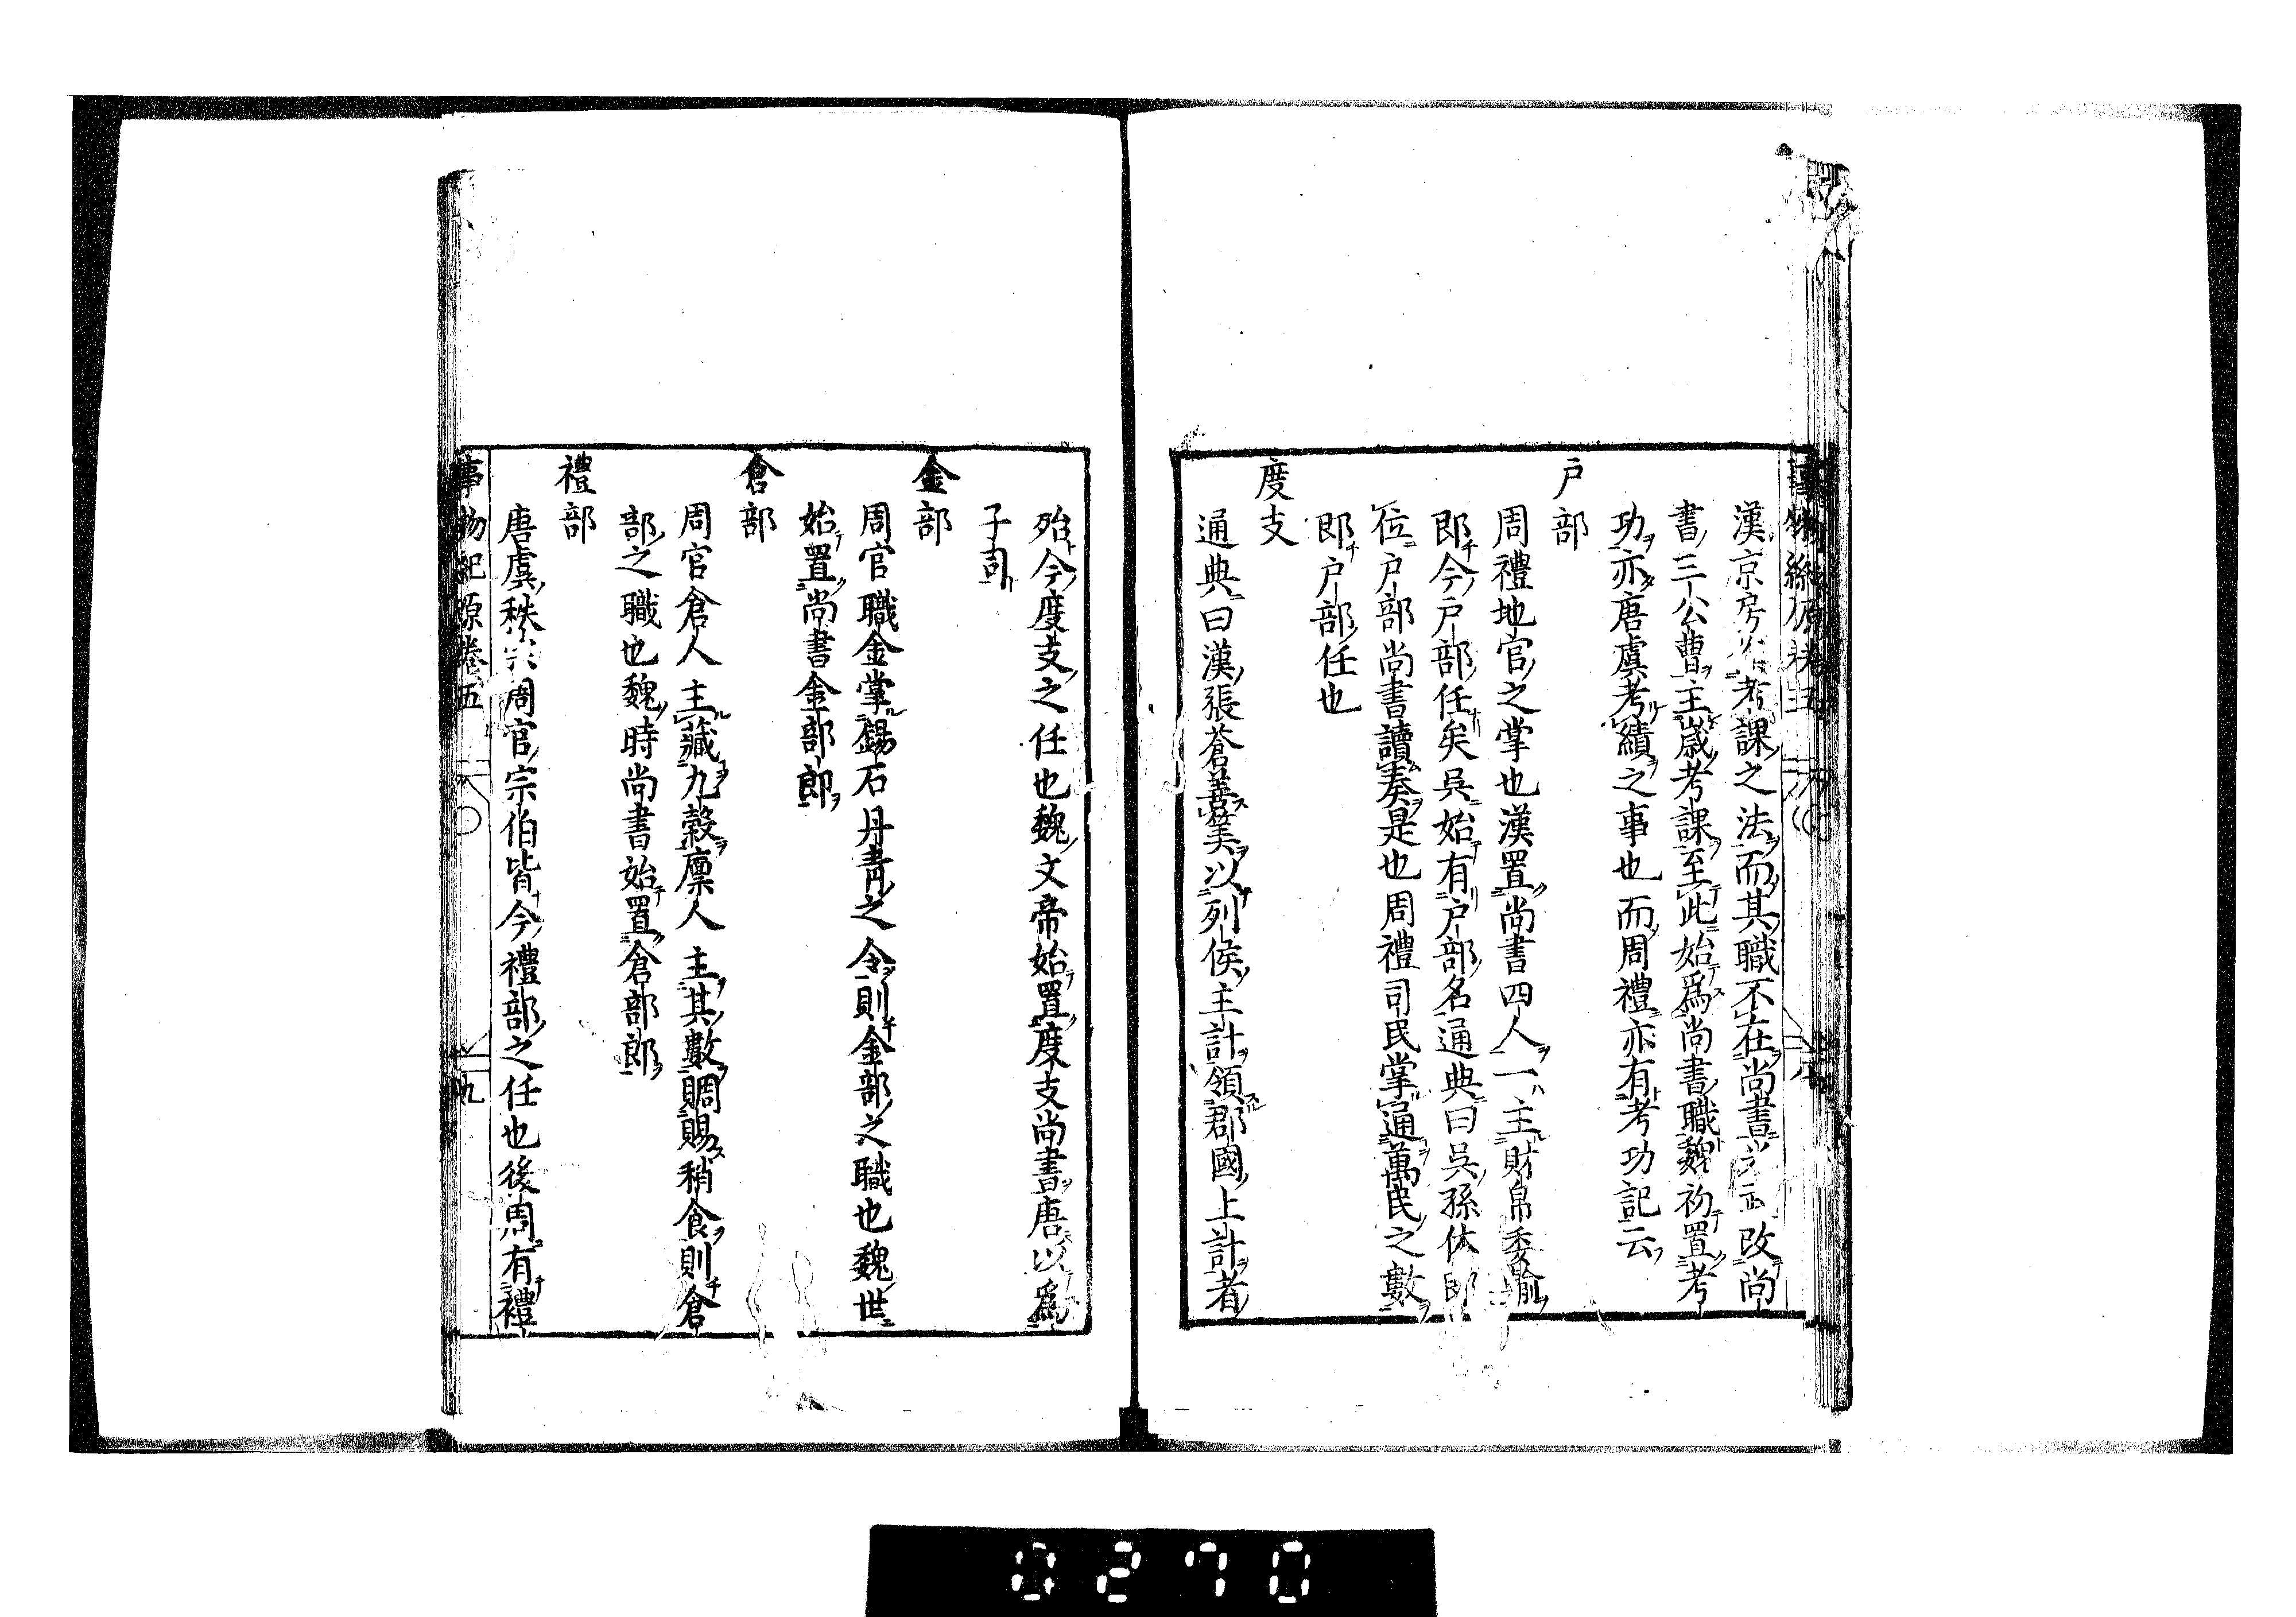 漢京房作考課之法而其職不在尚書光武改尚
書三公曹主歲考課至此始爲尚書職魏初置考
功亦唐虞考績之事也而周禮亦有考功記云
戸部
周禮地官之掌也漢置尚書四人一主財帛委輸
郎今戸部任矣吳始有戸部名通典曰吳孫休即
位戸部尚書讀奏是也周禮司民掌通萬民之數
即戸部任也
度支
通典曰漢張蒼善筭以列侯主計領郡國上計者
殆今度支之任也魏文帝始置度支尚書唐以爲
子司
金部
周官職金掌錫石丹青之令則金部之職也魏世
始置尚書金部郎
倉部
周官倉人主藏九穀廪人主其數賙賜稍食則倉
部之職也魏時尚書始置倉部郎
禮部
唐虞秩宗周官宗伯皆今禮部之任也後周有禮
事物紀原卷五 九
0270